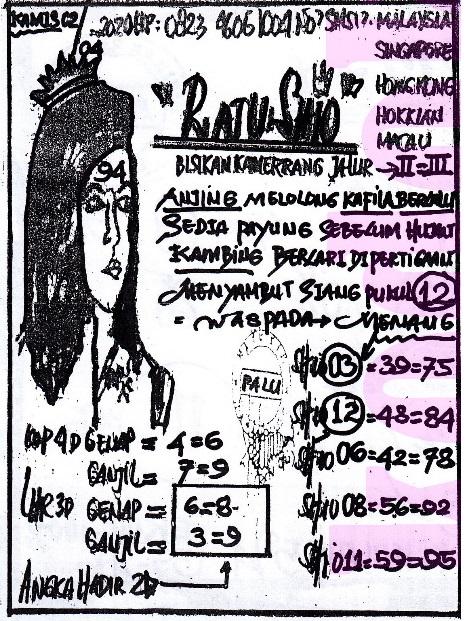 KAMIS C2
94
2020 HP: 0823 9606 1004 No? SHSI?: MALAYSIA
SINGAPORE
HONGKONG
HOKKIAN
MACAU
"RATU SHIO"
BISIKAN KAMERRANG JALUR → II = III
94
ANJING MELOLONG KAFILA BERLALU
SEDIA PAYUNG SEBELUM HUJAN
KAMBING BERLARI DI PERTIGAAN
MENYAMBUT SIANG PUKUL 12
= WASPADA → MENANG
PALU
SHIO 03 = 39 = 75
SHIO 12 = 48 = 84
SHIO 06 = 42 = 78
SHIO 08 = 56 = 92
SHIO 11 = 59 = 95
KOP 4D GENAP = 4 = 6
GANJIL = 7 = 9
LHR 3D GENAP = 6 = 8
GANJIL = 3 = 9
ANGKA HADIR 2D